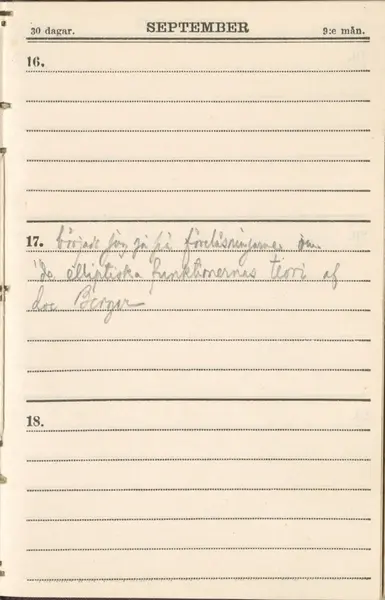 30 dagar. SEPTEMBER 9:e mån.
16.
17. började jag gå på föreläsningarna om
de elliptiska funktionernas teori af
doc Berger
18.